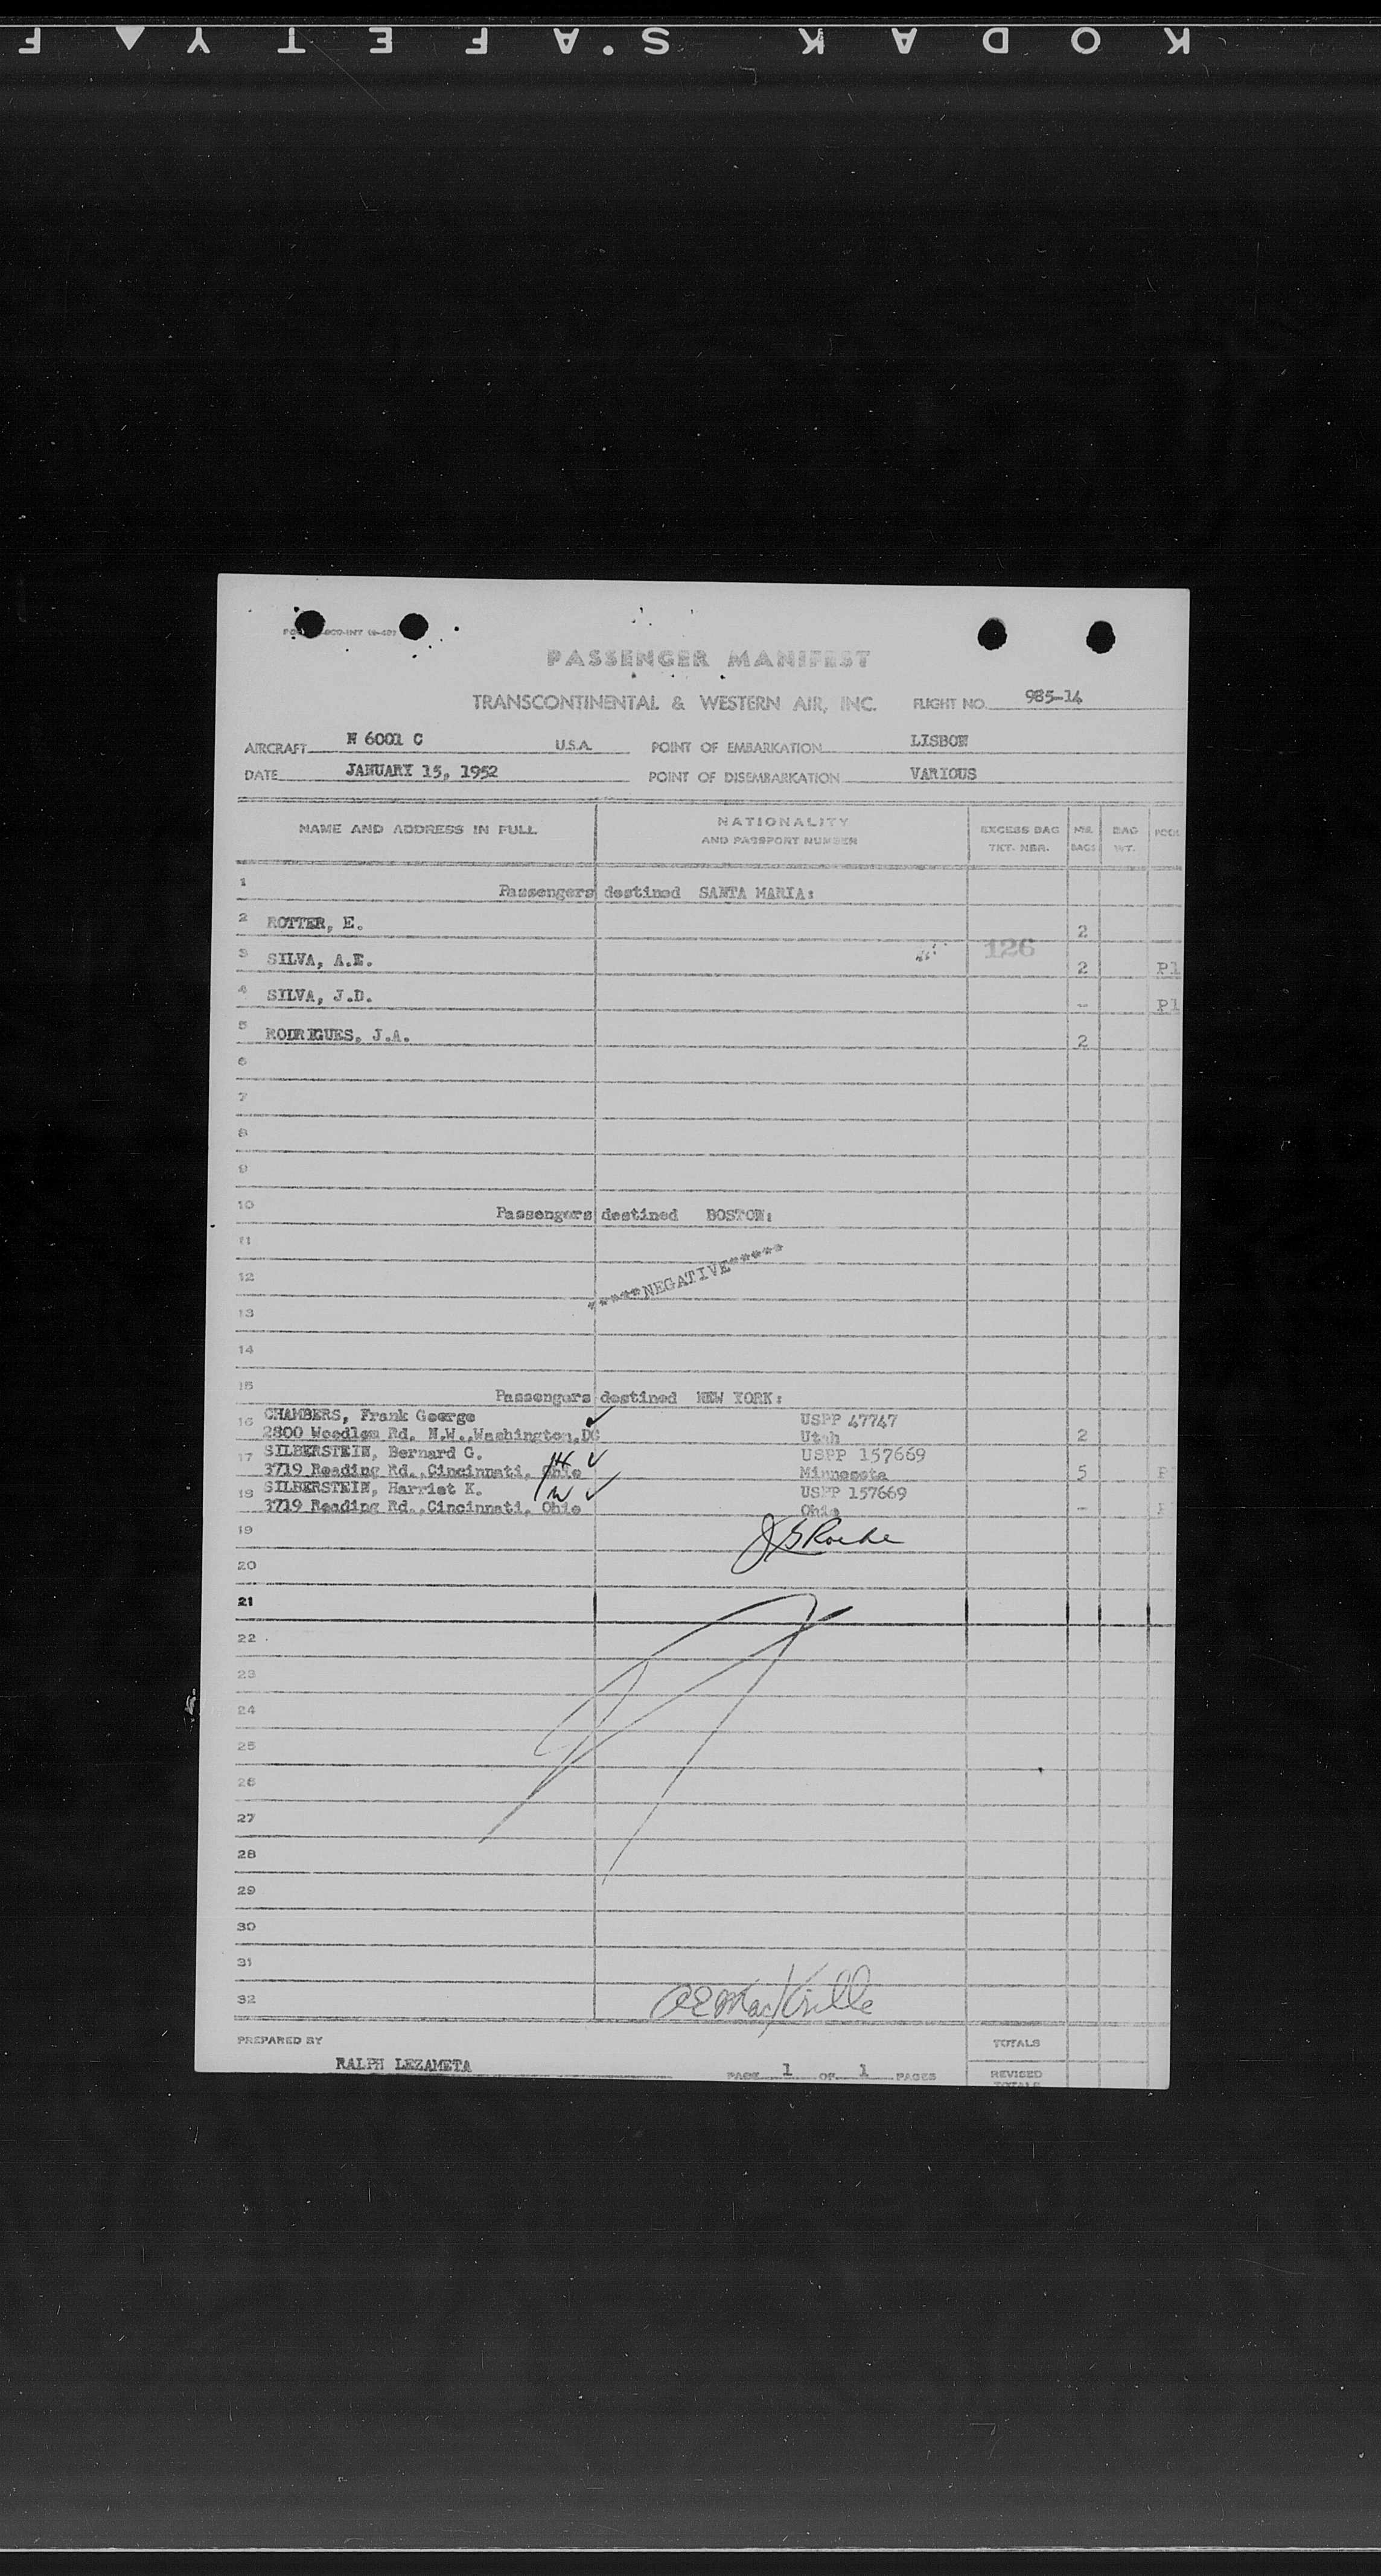 KODAK S'A F E T Y F
PASSENGER MANIFEST
TRANSCONTINENTAL & WESTERN AIR, INC. FLIGHT NO. 985-14
AIRCRAFT N 6001 C U.S.A. POINT OF EMBARKATION LISBON
DATE JANUARY 15, 1952 POINT OF DISEMBARKATION VARIOUS
NAME AND ADDRESS IN FULL NATIONALITY AND PASSPORT NUMBER EXCESS BAG TKT. NBR. NBR. BAGS BAG WT. POOL
1 Passengers destined SANTA MARIA:
2 ROTTER, E. 2
126
3 SILVA, A.E. 2 P1
4 SILVA, J.D. - P1
5 RODRIGUES, J.A. 2
6
7
8
9
10 Passengers destined BOSTON:
11
12 *****NEGATIVE*****
13
14
15 Passengers destined NEW YORK:
16 CHAMBERS, Frank George USPP 47747
2800 Woodlem Rd. N.W., Washington, DC Utah 2
17 SILBERSTEIN, Bernard G. USPP 157669
3719 Reading Rd., Cincinnati, Ohio Minnesota 5
18 SILBERSTEIN, Harriet K. USPP 157669
3719 Reading Rd., Cincinnati, Ohio Ohio -
19
20
21
22
23
24
25
26
27
28
29
30
31
32
PREPARED BY TOTALS
RALPH LEZAMETA PAGE 1 OF 1 PAGES REVISED TOTALS